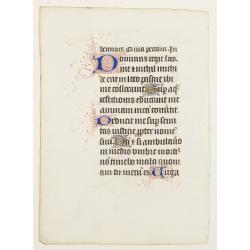 Dominus regit me
et nichil michi
de erit in loco pascue ibi
me collocauit Sup aq
refectionis educauit me
animam mea conuertit
Deduxit me sup semi
tas iusticie ppter nome
suum Nam & si ambulauero
in medio umbre mortis
no timebo mala quoni
am tu mecu es Uirga